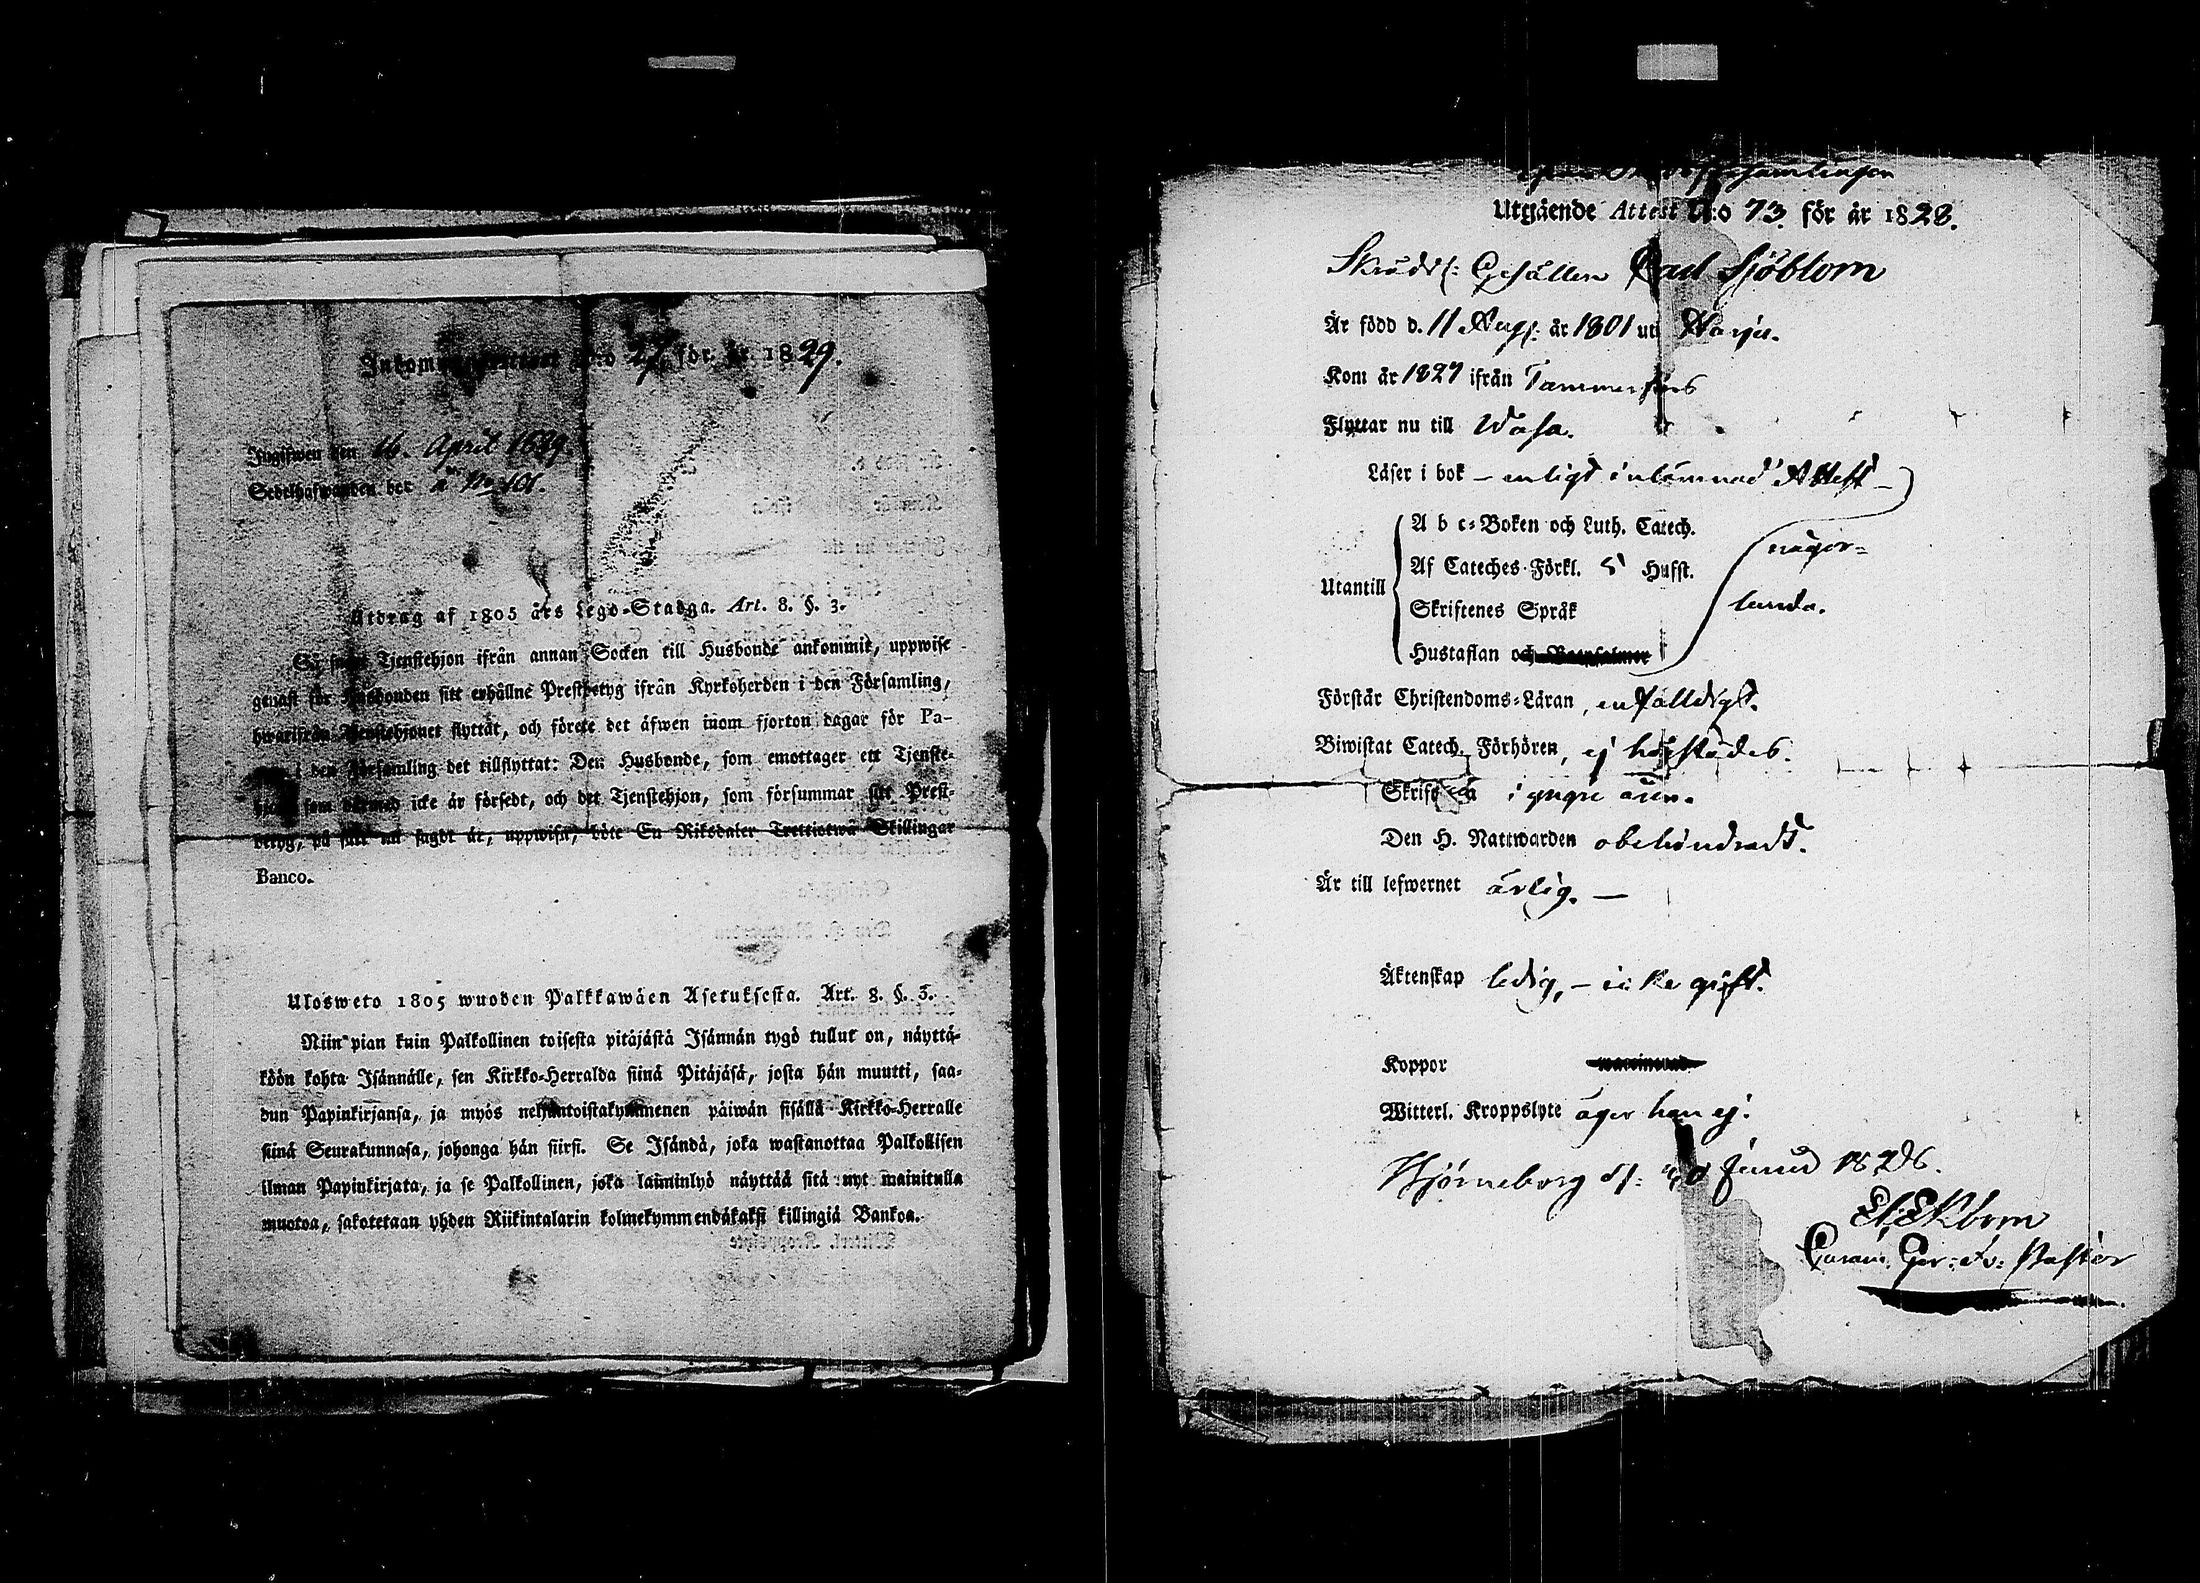 Inkommande Attest N:o 27 för år 1829.
Ingifwen den 16. April 1829.
Sedelhafwanden bor å N:o 101.
Utdrag af 1805 års Lego-Stadga. Art. 8. §. 3.
Så snart Tjenstehjon ifrån annan Socken till Husbonde ankommit, uppwise
genast för Husbonden sitt erhållne Prestbetyg ifrån Kyrkoherden i den Församling,
hwarifrån Tjenstehjonet flyttat, och förete det äfwen inom fjorton dagar för Pa-
i den Församling det tillflyttat: Den Husbonde, som emottager ett Tjenste-
hjon som dermed icke är försedt, och det Tjenstehjon, som försummar sitt Prest-
betyg, på sätt nu sagdt är, uppwisa, böte En Riksdaler Trettiotwå Skillingar
Banco.
Ulosweto 1805 wuoden Palkkawäen Asetuksesta. Art. 8. §. 3.
Niin pian kuin Palkollinen toisesta pitäjästä Isännän tygö tullut on, näyttä-
köön kohta Isännälle, sen Kirkko-Herralda siinä Pitäjäsä, josta hän muutti, saa-
dun Papinkirjansa, ja myös neljäntoistakymmenen päiwän sisällä Kirkko-Herralle
siinä Seurakunnasa, johonga hän siirsi. Se Isändä, joka wastanottaa Palkollisen
ilman Papinkirjata, ja se Palkollinen, joka laiminlyö näyttää sitä nyt mainitulla
muotoa, sakotetaan yhden Riikintalarin kolmekymmendäkaksi killingiä Bankoa.
församlingen
Utgående Attest N:o 73 för år 1828.
Skrädd: Gesällen Carl Sjöblom
Är född d. 11 Aug: år 1801 uti Harju.
Kom år 1827 ifrån Tammerfors
Flyttar nu till Wasa.
Läser i bok – enligt inlämnad Attest –
Utantill
A b c-Boken och Luth. Catech.
Af Cateches Förkl. 5 Hufst.
Skriftenes Språk
Hustaflan och Botpsalmer
någor=
lunda.
Förstår Christendoms-Läran, enfalldigt.
Biwistat Catech. Förhören, ej härstädes.
Skrif i yngre åren.
Den H. Nattwarden obehindradt.
Är till lefwernet ärlig. —
Äktenskap ledig, – icke gift.
Koppor
Witterl. Kroppslyte äger han ej.
Björneborg d: Junii 1828.
El: Ekbom
Past:or